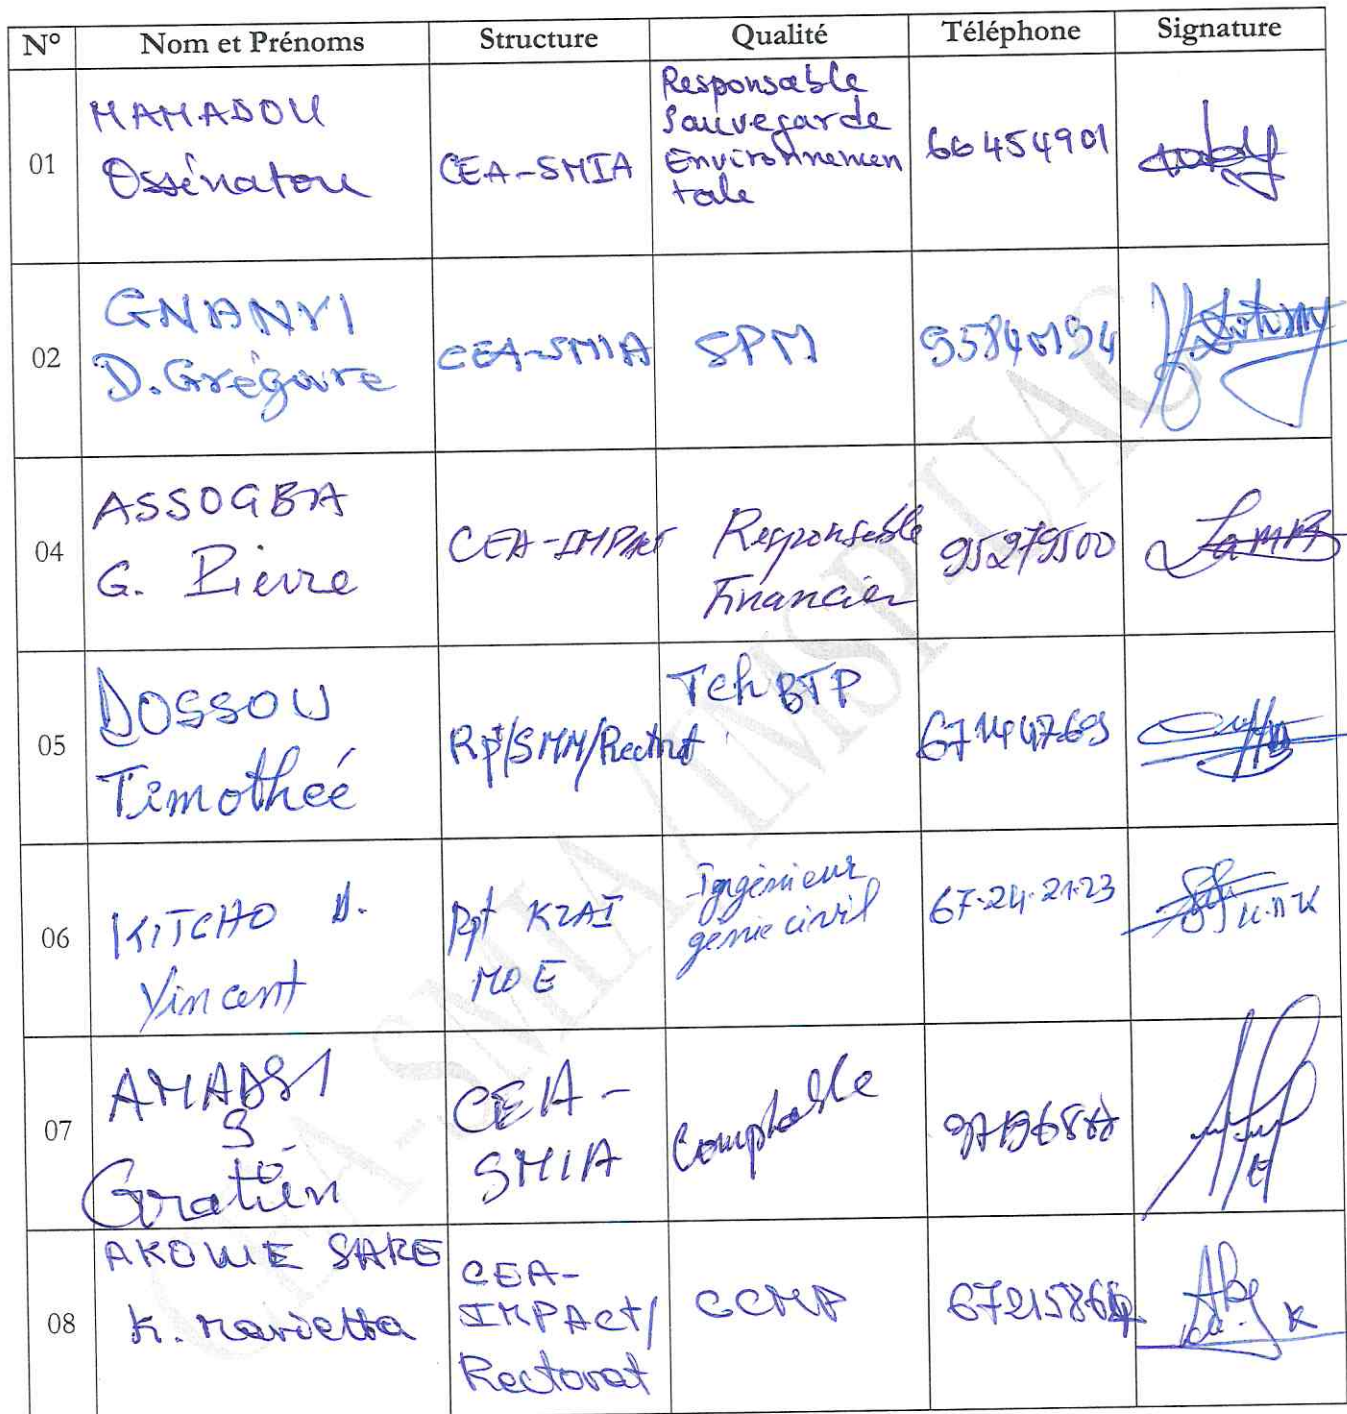 N° Nom et Prénoms Structure Qualité Téléphone Signature
01
MAMADOU
Ossénatou
CEA-SMIA
Responsable
Sauvegarde
Environnemen
tale
66454901
02
GNANVI
D. Grégoire
CEA-SMIA
SPM
95840194
04
ASSOGBA
G. Pierre
CEA-IMPAct
Responsable
Financier
95279500
05
DOSSOU
Timothéé
Rpt/SMM/Rectorat
Tch BTP
67144769
06
KITCHO D.
Vincent
Rpt KZAI
MOE
Ingénieur
génie civil
67-24-21-23
07
AMADJI
S.
Gratien
CEA-
SMIA
Comptable
08
AKOWE SAKE
K. Marietta
CEA-
IMPAct/
Rectorat
CCMP
CEA-SMIA/IMSP/UAC